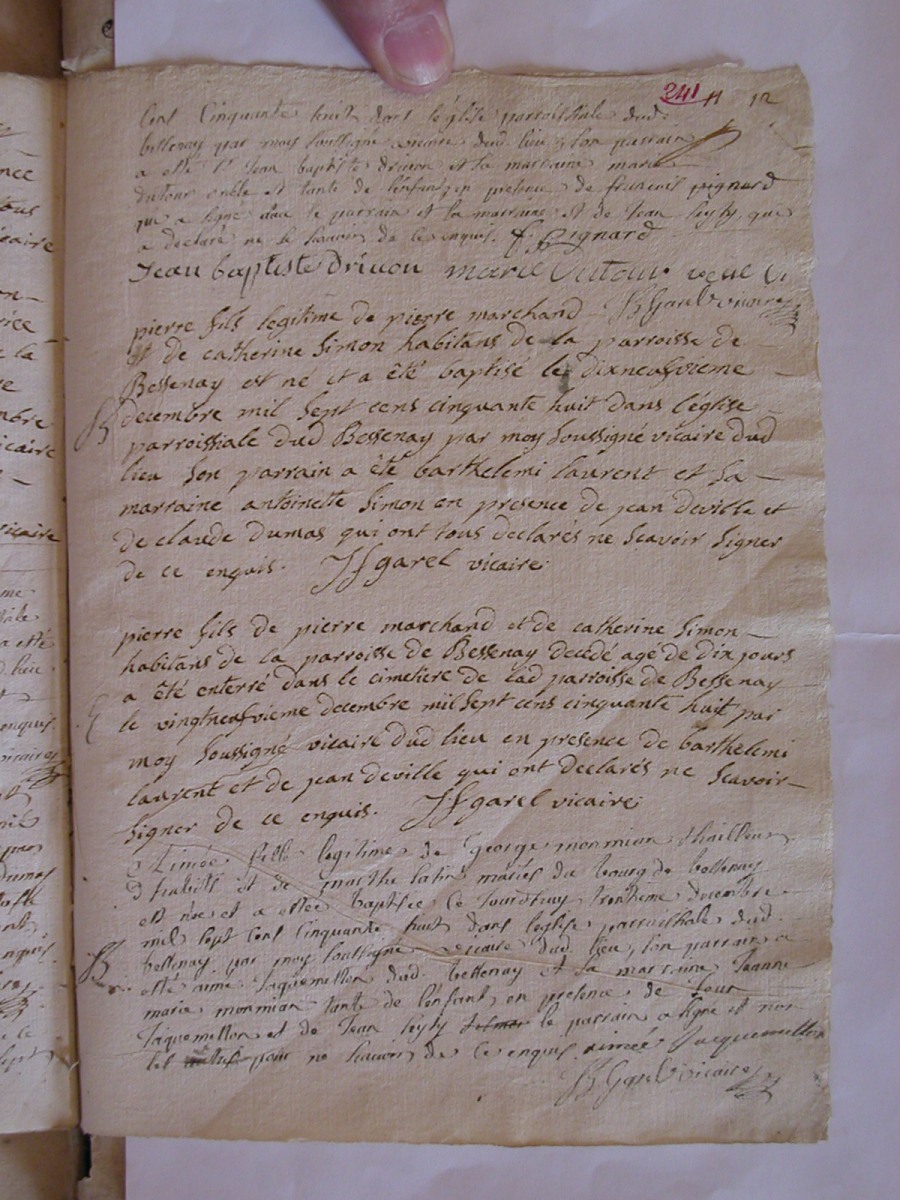 241 11 12
cens cinquante huit dans l'église parroissiale dud.
bessenay par moy soussigné vicaire dud lieu, son parrain
a esté sr Jean baptiste drivon et sa marraine marie
dutour oncle et tante de l'enfant, en présence de françois pignard
qui a signé avec le parrain et la marraine et de Jean seyty qui
a declaré ne le scavoir de ce enquis. f. Pignard
Jean baptiste drivon marie dutour
JB Garel vicaire
pierre fils legitime de pierre marchand
et de catherine Simon habitans de la parroisse de
Bessenay est né et a été baptisé le dixneufvieme
decembre mil sept cens cinquante huit dans l'église
B
parroissiale dud Bessenay par moy soussigné vicaire dud
lieu son parrain a été barthelemi laurent et sa
marraine antoinette Simon en presence de jean deville et
de claude dumas qui ont tous declarés ne scavoir signer
de ce enquis. garel vicaire
pierre fils de pierre marchand et de catherine Simon
habitans de la parroisse de Bessenay decedé agé de dix jours
a été enterré dans le cimetiere de lad parroisse de Bessenay
le vingtneufvieme decembre mil sept cens cinquante huit par
moy soussigné vicaire dud lieu en presence de barthelemi
laurent et de jean deville qui ont declarés ne scavoir
signer de ce enquis. garel vicaire
Aimée fille legitime de George monmian thailleur
d'habits et de marthe latin mariés du bourg de bessenay
est née et a estée baptisée ce jourdhuy trentieme decembre
mil sept cens cinquante huit dans l'eglise parroissiale dud.
B
bessenay par moy soussigné vicaire dud. lieu, son parrain a
esté aimé Jaquemetton dud. bessenay et sa marraine Jeanne
marie monmian tante de l'enfant, en presence de
Jaquemetton et de Jean seyty le parrain a signé et non
les pour ne scavoir de ce enquis. aimée Jacquemetton
JB Garel vicaire